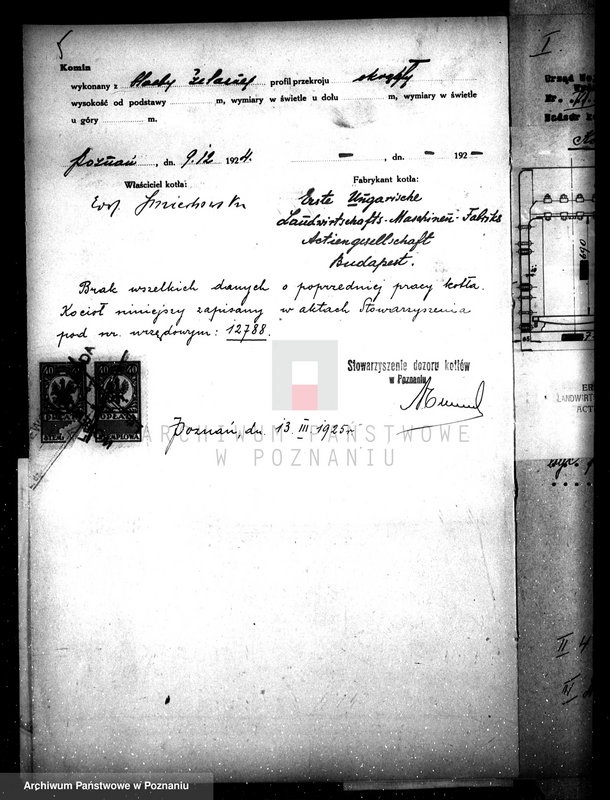 Komin
wykonany z blachy żelaznej profil przekroju okrągły
wysokość od podstawy m, wymiary w świetle u dołu m, wymiary w świetle
u góry m.
Poznań, dn. 9.12 1924. – , dn. – 192 –
Właściciel kotła: Fabrykant kotła:
Erste Ungarische
Landwirtschafts-Maschinen-Fabriks
Actiengesellschaft
Budapest.
Brak wszelkich danych o poprzedniej pracy kotła.
Kocioł niniejszy zapisany w aktach Stowarzyszenia
pod nr. urzędowym: 12788.
40 40
Stowarzyszenie dozoru kotłów
w Poznaniu
Poznań, dn. 13 III 1925 r.
ARCHIWUM PAŃSTWOWE
W POZNANIU
I
690
II 4
III
Archiwum Państwowe w Poznaniu